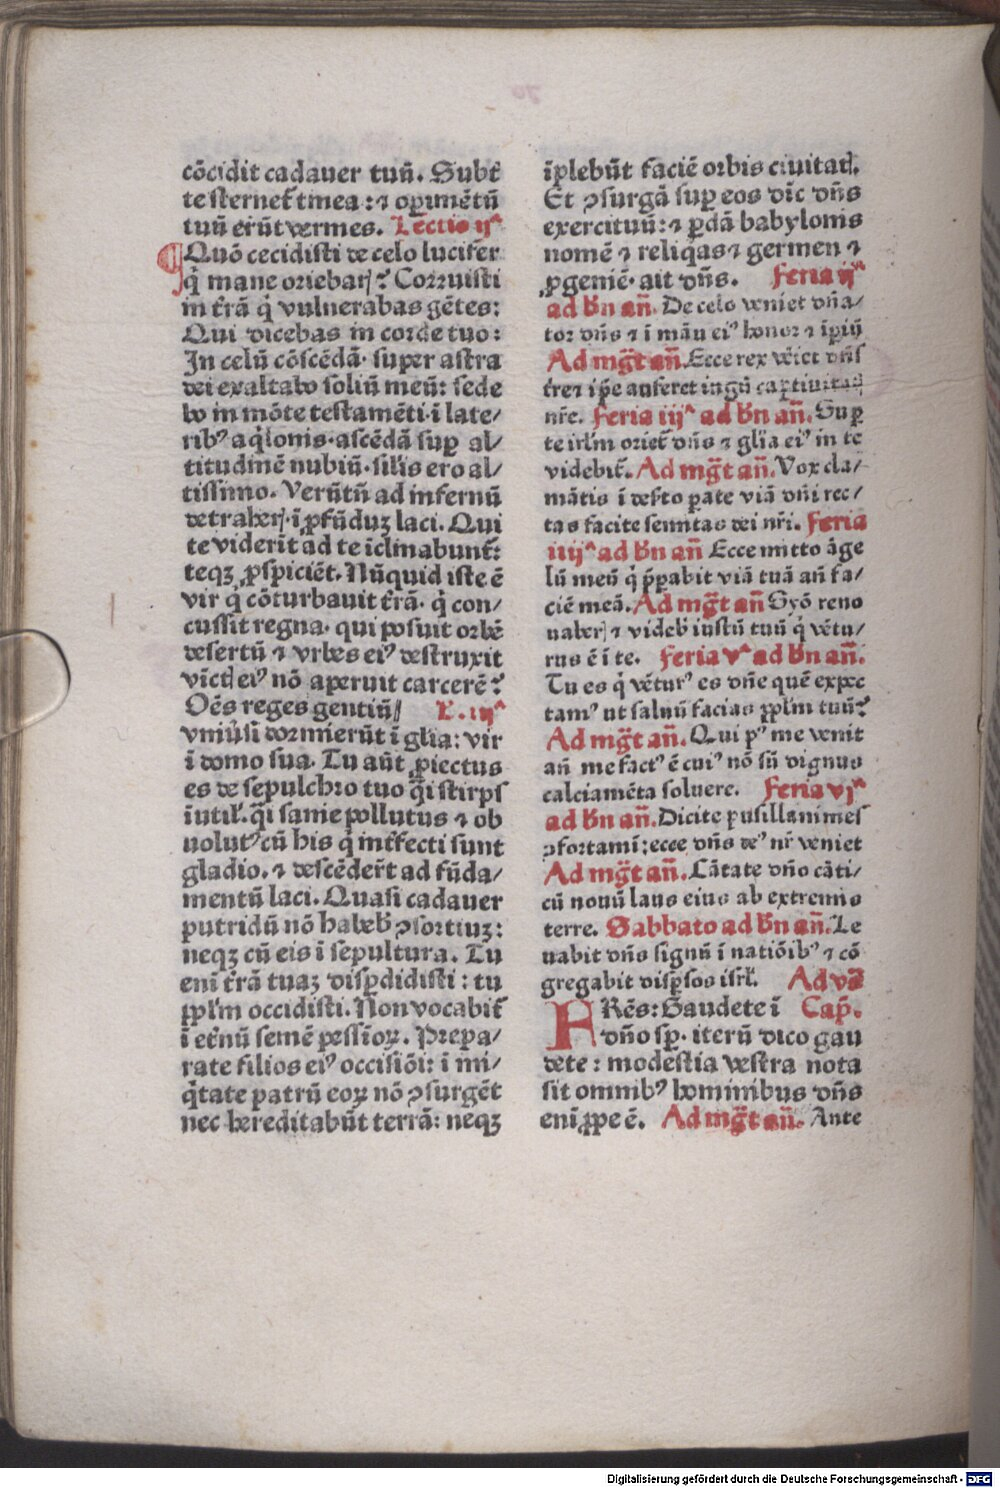 cõcidit cadauer tuũ. Subt̃
te sternet̃ tinea: ⁊ oꝑimẽtũ
tuũ erũt vermes. Lectio ijᵃ
Quõ cecidisti de celo lucifer
q̇ mane oriebarꝭ? Corruisti
in t̃rã q̇ vulnerabas gẽtes:
Qui dicebas in corde tuo:
In celũ cõscẽdã· super astra
dei exaltabo soliũ meũ: sede
bo in mõte testamẽti·i late/
ribꝰ aq̇lonis·ascẽdã suꝑ al/
titudinẽ nubiũ·silis ero al/
tissimo. Verũtñ ad infernũ
detraherꝭ·ĩ ꝓfũduꝫ laci. Qui
te viderĩt ad te ĩclinabunt̃:
teqꝫ ꝓspiciẽt. Nũquid iste ẽ
vir q̇ cõturbauit t̃rã· q̇ con/
cussit regna· qui posuit orbẽ
desertũ ⁊ vrbes eiꝰ destruxit
vĩctꝭ eiꝰ nõ aperuit carcerẽ?
Oẽs reges gentiũ// L. iijᵃ
vniũsi dormierũt ĩ glĩa: vir
ĩ domo sua. Tu aũt ꝓiectus
es de sepulchro tuo q̃i stirps
ĩutił. q̃i sanie pollutus ⁊ ob
uolutꝰ cũ his q̇ int̃fecti sunt
gladio. ⁊ descẽder̃t ad fũda/
mentũ laci. Quasi cadauer
putridũ nõ habeb̾ ꝯsortiuꝫ:
neqꝫ cũ eis ĩ sepultura. Tu
enĩ t̃rã tuaꝫ disꝑdidisti: tu
ppl̃m occidisti. Non vocabit̃
ĩ et̃nũ semẽ pessĩoꝝ. Prepa/
rate filios eiꝰ occisiõi: ĩ ini/
q̇tate patrũ eoꝝ nõ ꝯsurgẽt
nec hereditabũt terrã: neqꝫ
ĩplebũt faciẽ orbis ciuitatꝭ.
Et ꝯsurgã suꝑ eos dĩc dñs
exercituũ: ⁊ ꝑdã babylonis
nomẽ ⁊ reliq̇as ⁊ germen ⁊
ꝓgeniẽ· ait dñs. Feria ijᵃ
ad bñ añ. De celo veniet dña/
tor dñs ⁊ ĩ mãu eiꝰ honor ⁊ ĩꝑiũ
Ad mg̃t añ. Ecce rex vẽiet dñs
t̃re ⁊ ip̃e auferet iugũ captiuitatꝭ
nr̃e. Feria iijᵃ ad bñ añ. Suꝑ
te irl̃m oriet̃ dñs ⁊ glĩa eiꝰ in te
videbit̃. Ad mg̃t añ. Vox cla/
mãtis ĩ desto ꝑate viã dñi rec/
tas facite semitas dei nr̃i. Feria
iiijᵃ ad bñ añ Ecce mitto ãge
lũ meũ q̇ p̃ꝑabit viã tuã añ fa/
ciẽ meã. Ad mg̃t añ Syõ reno
uaberꝭ ⁊ videb̾ iustũ tuũ q̇ vẽtu/
rus ẽ ĩ te. Feria vᵃ ad bñ añ.
Tu es q̇ vẽturꝰ es dñe quẽ expec
tamꝰ ut saluũ facias ppl̃m tuũ?
Ad mg̃t añ. Qui pꝰ me venit
añ me factꝰ ẽ cuiꝰ nõ sũ dignus
calciamẽta soluere. Feria vjᵃ
ad bñ añ. Dicite pusillanimes
ꝯfortamĩ: ecce dñs deꝰ nr̃ veniet
Ad mg̃t añ. Cãtate dño cãti/
cũ nouũ laus eius ab extremis
terre. Sabbato ad bñ añ. Le
uabit dñs signũ ĩ natiõibꝰ ⁊ cõ
gregabit disꝑsos isrł. Ad vs̃
FRẽs: Gaudete ĩ Cap̃.
dño sꝑ· iterũ dico gau
dete: modestia vestra nota
sit omnibꝰ hominibus dñs
enĩ ꝓpe ẽ. Ad mg̃t añ. Ante
Digitalisierung gefördert durch die Deutsche Forschungsgemeinschaft - DFG